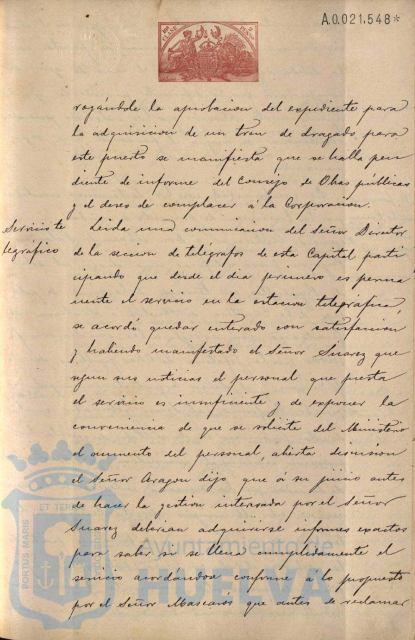 A.0.021,548*
rogándole la aprobacion del expediente para
la adquisicion de un tren de dragado para
este puerto se manifiesta que se halla pen
diente de informe del Consejo de Obas públicas
y el deseo de complacer á la Corporacion.
Servicio te
legráfico
Leida una comunicacion del Señor Director
de la seccion de telégrafos de esta Capital parti
cipando que desde el dia primero es perma
nente el servicio en la estacion telegrafica,
se acordó quedar enterado con satisfaccion
y habiendo manifestado el Señor Suarez que
segun sus noticias el personal que presta
el servicio es insuficiente y de exponer la
conveniencia de que se solicite del Ministerio
el aumento del personal, abierta discusion
el Señor Aragon dijo que á su juicio antes
de hacer la gestion interesada por el Señor
Suarez debian adquirirse informes exactos
para saber si se llena cumplidamente el
servicio acordándose conforme á lo propuesto
por el Señor Mascarós que antes de reclamar
PORTUS MARIS
ET TERR
Ayuntamiento de
HUELVA